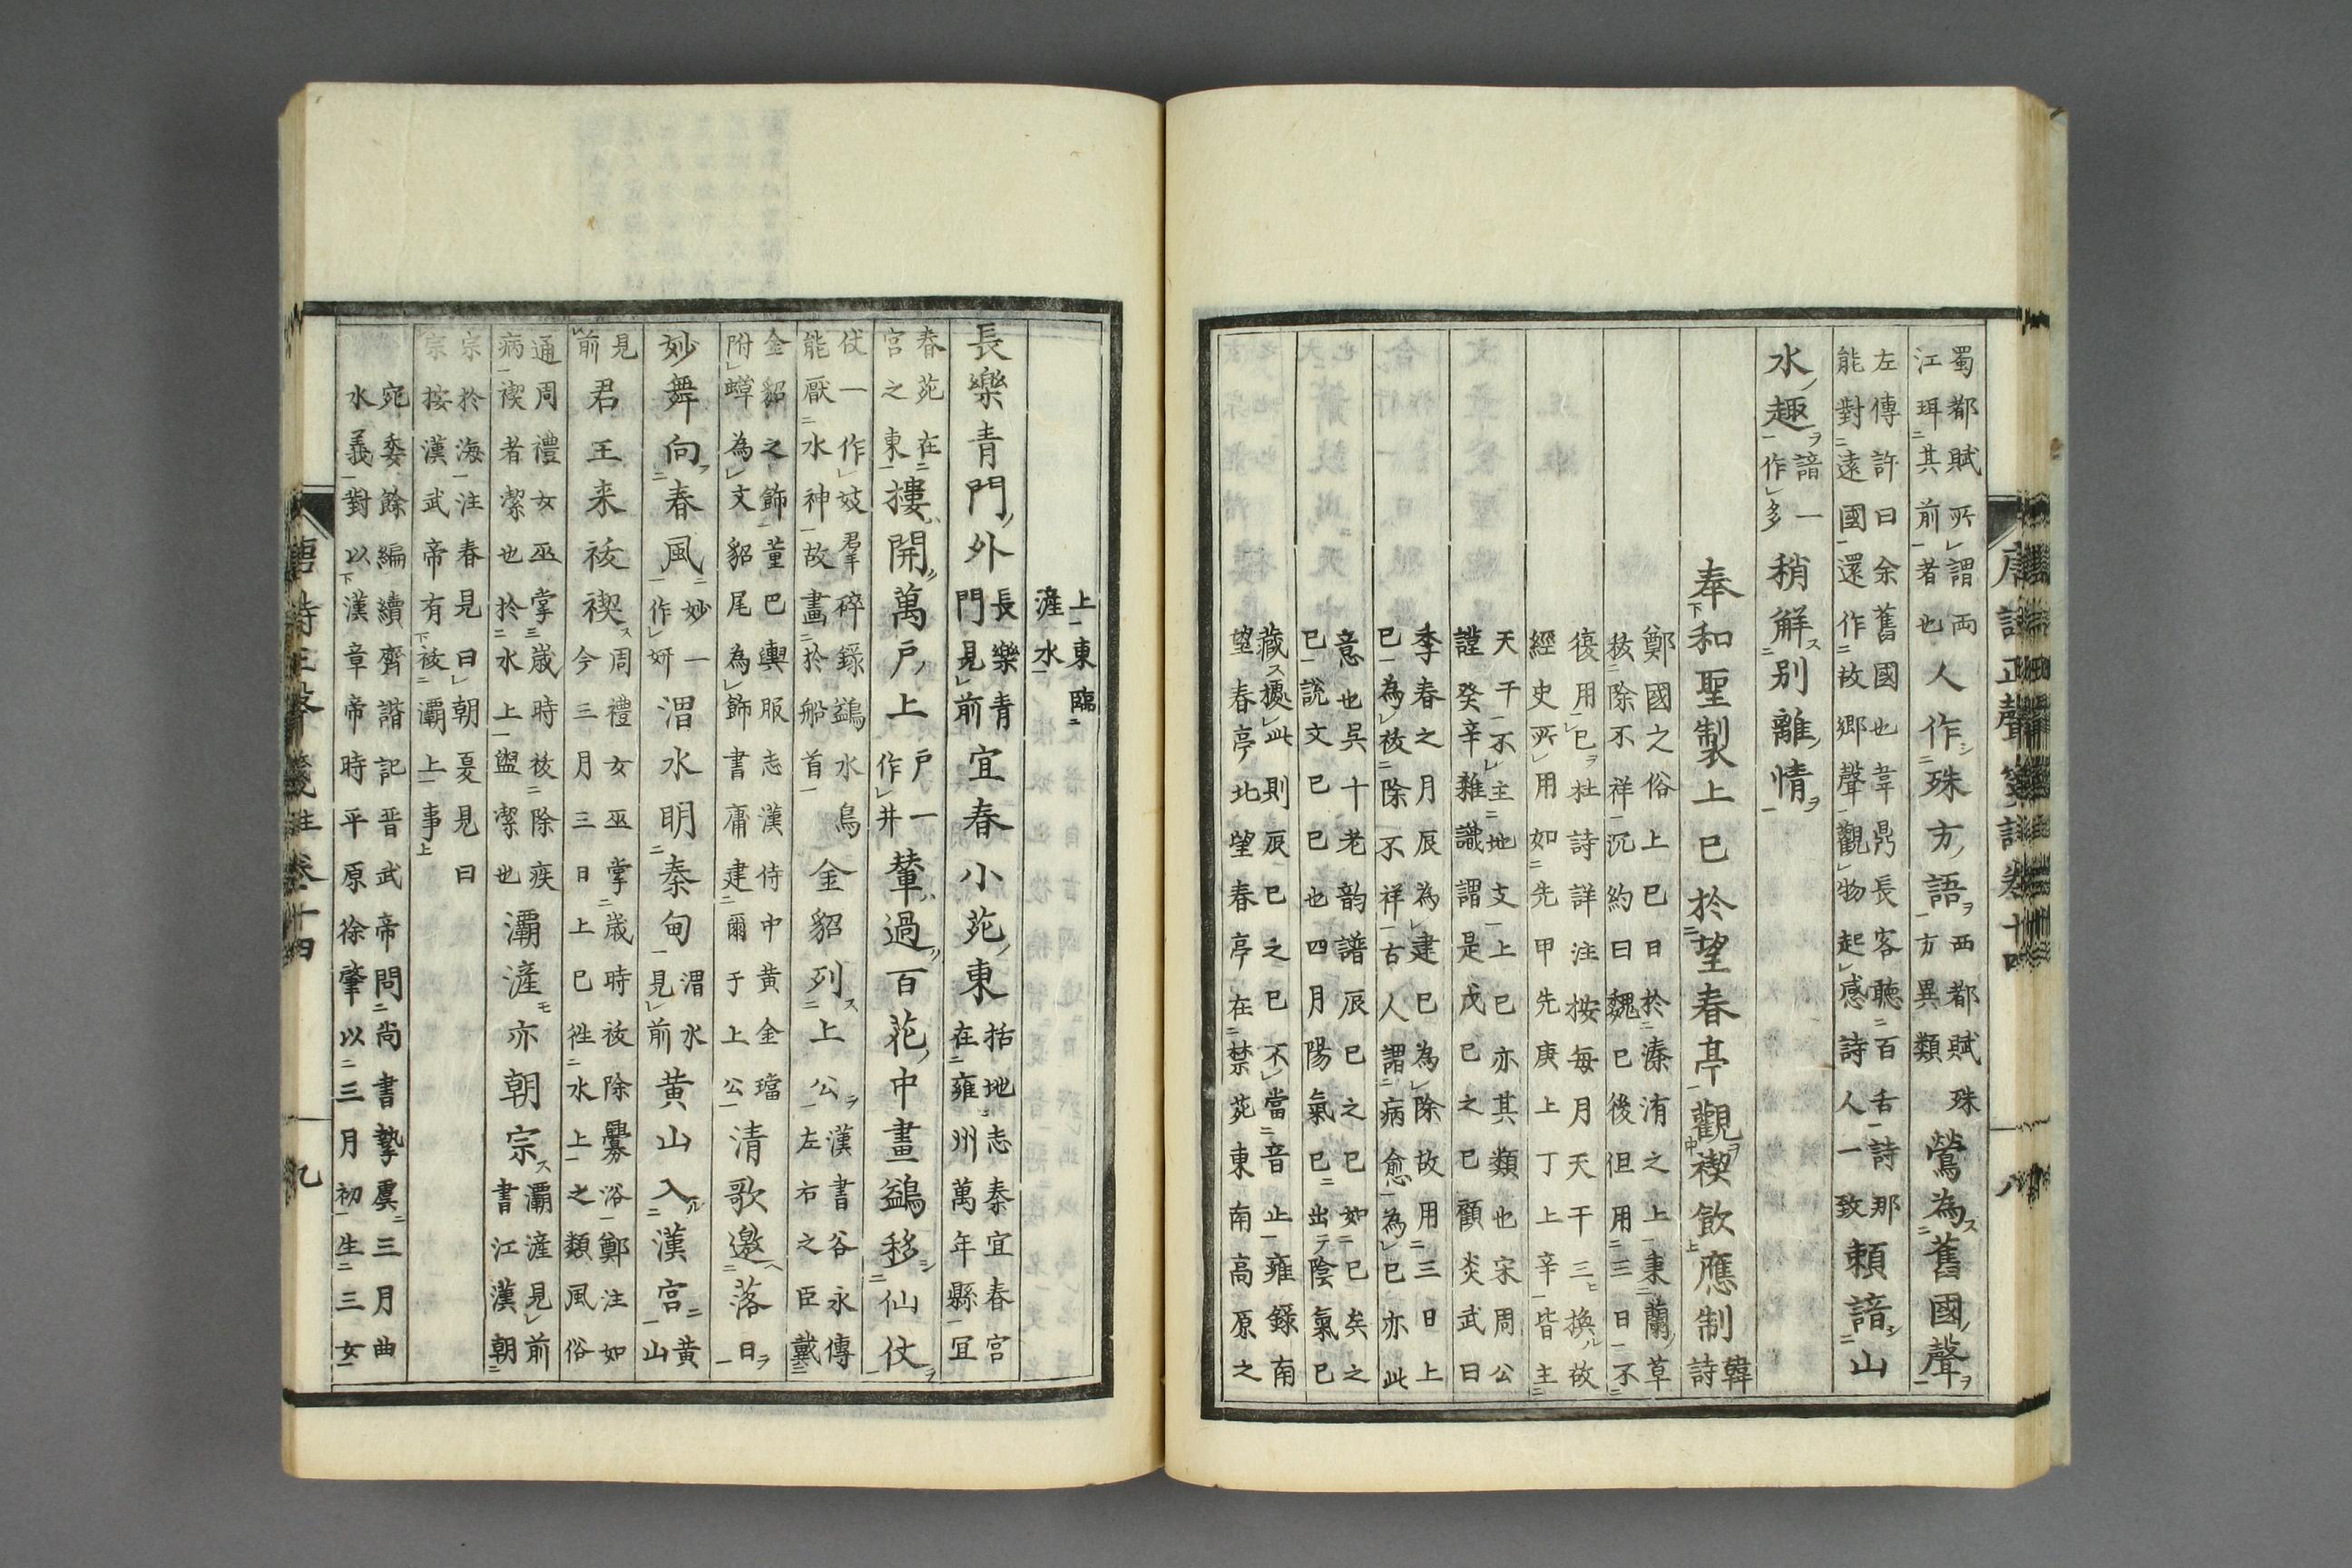 唐詩正聲箋註卷十四 八
蜀都賦所謂兩江珥其前者也人作珠方語西都賦珠方異類鶯為舊國聲
左傳許曰余舊國也韋鼎長客聽百舌詩那能對遠國還作故郷聲觀物起感詩人一致頼諳山
水趣諳一作多稍解別離情
奉和聖製上巳於望春亭觀禊飲應制 韓詩
鄭國之俗上巳日於溱洧之上秉蘭草
祓除不祥沉約曰魏已後但用三日不
復用巳杜詩詳注按每月天干三換故
經史所用如先甲先庚上丁上辛皆主
天干不主地支上巳亦其類也宋周公
謹癸辛雜識謂是戊己之己顧炎武曰
季春之月辰為建巳為除故用三日上
巳為祓除不祥古人謂病愈為巳亦此
意也吳十老韵譜辰巳之巳如巳矣之
巳說文巳巳也四月陽氣巳出陰氣巳
藏據此則辰巳之巳不當音止雍錄南
望春亭北望春亭在禁苑東南高原之
上東臨
滻水
長樂青門外長樂青門見前宜春小苑東括地志秦宜春宮在雍州萬年縣宜
春苑在宮之東樓開萬戶上戶一作井輦過百花中畫鷁移仙仗
仗一作妓羣碎錄鷁水鳥能厭水神故畫於船首金貂列上公漢書谷永傳左右之臣戴
金貂之飾董巴輿服志漢侍中黃金璫附蟬為文貂尾為飾書庸建爾于上公清歌邀落日
妙舞向春風妙一作妍渭水明秦甸渭水見前黃山入漢宮黃山
見前君王来祓禊周禮女巫掌歲時祓除釁浴鄭注如今三月三日上巳徃水上之類風俗
通周禮女巫掌歲時祓除疾病禊者潔也於水上盥潔也灞滻亦朝宗灞滻見前書江漢朝
宗於海注春見曰朝夏見曰宗按漢武帝有祓灞上事
宛委餘編續齊諧記晋武帝問尚書摯虞三月曲
水義對以漢章帝時平原徐肇以三月初生三女
唐詩正聲箋註卷十四 九